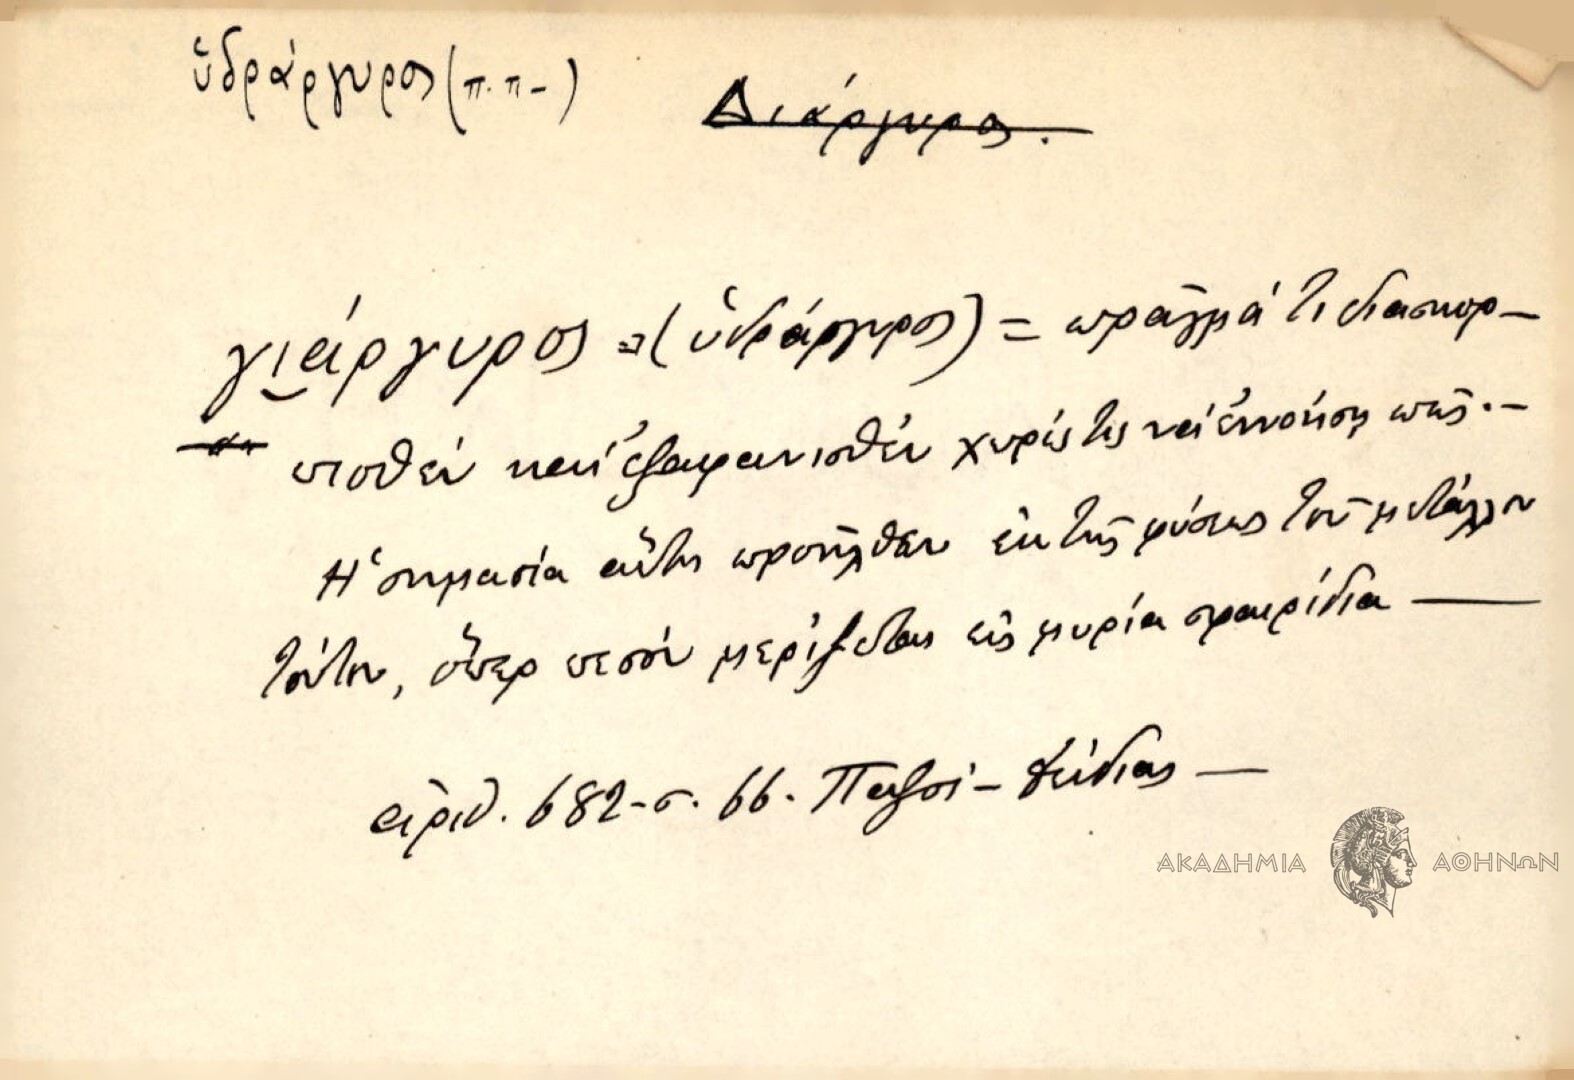 ὑδράργυρος (π. π-)
Διάργυρος.
γι̯άργυρος = (ὑδράργυρος) = πρᾶγμά τι διασκορ-
πισθὲν καὶ ἐξαφανισθὲν χωρίς τις νὰ ἐννοήσῃ πῶς.-
Ἡ σημασία αὕτη προῆλθεν ἐκ τῆς φύσεως τοῦ μετάλλου
τούτου, ὅπερ πεσὸν μερίζεται εἰς μυρία σφαιρίδια —
ἀριθ. 682 - σ. 66. Παξοὶ -
ΑΚΑΔΗΜΙΑ ΑΘΗΝΩΝ